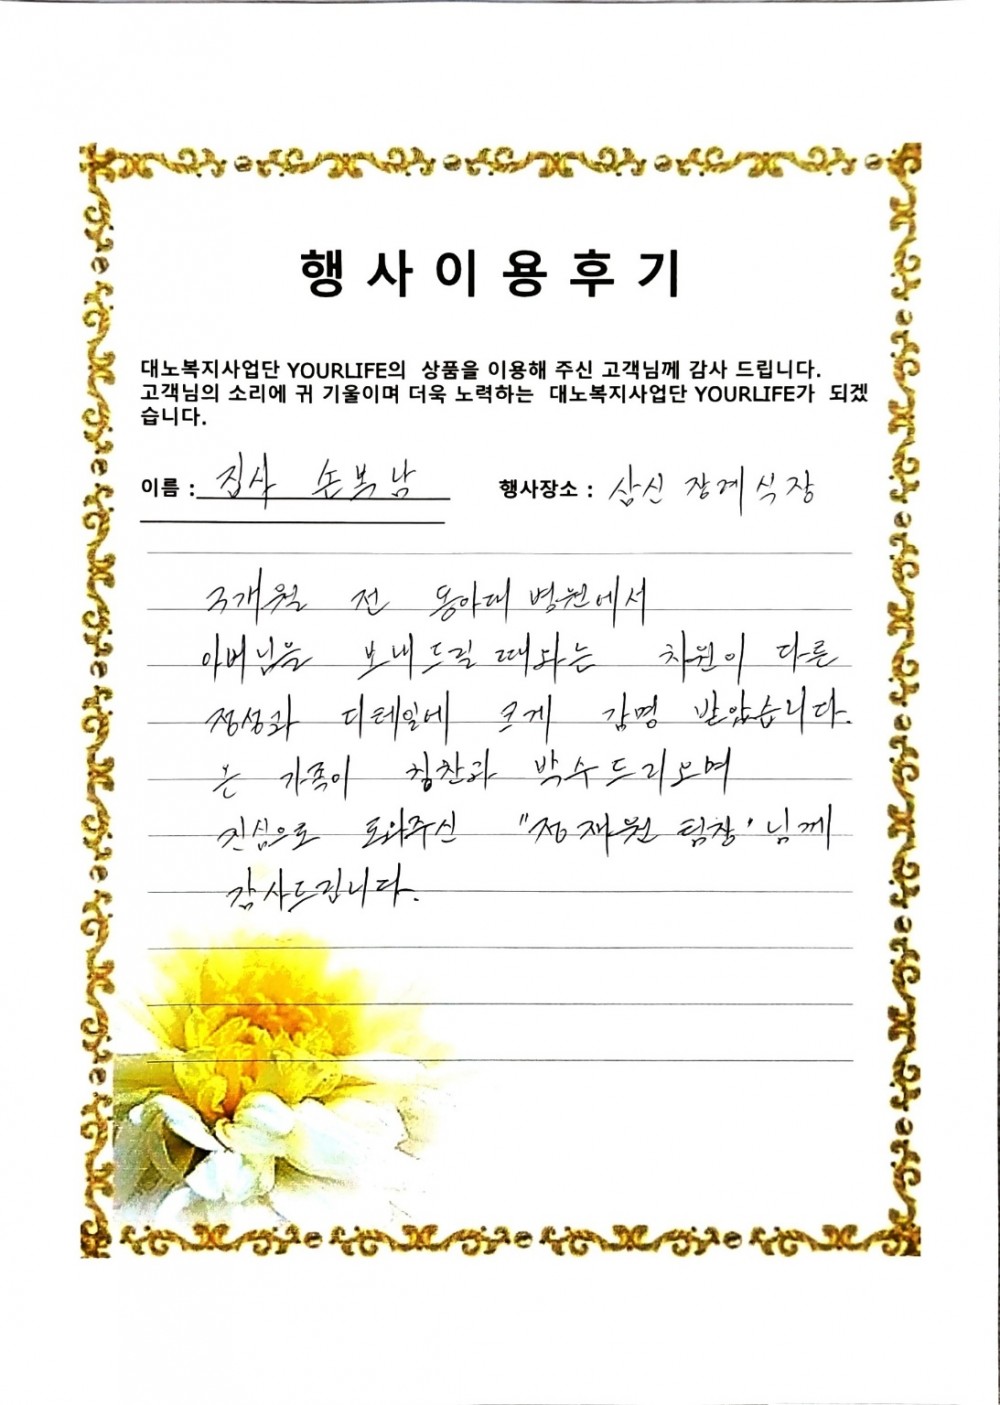 행사이용후기
대노복지사업단 YOURLIFE의 상품을 이용해 주신 고객님께 감사 드립니다.
고객님의 소리에 귀 기울이며 더욱 노력하는 대노복지사업단 YOURLIFE가 되겠
습니다.
이름 : 집사 손복남 행사장소 : 삼신 장례식장
3개월 전 동아대 병원에서
아버님을 보내드릴 때와는 차원이 다른
정성과 디테일에 크게 감명 받았습니다.
온 가족이 칭찬과 박수드리오며
진심으로 도와주신 "정재원 팀장"님께
감사드립니다.